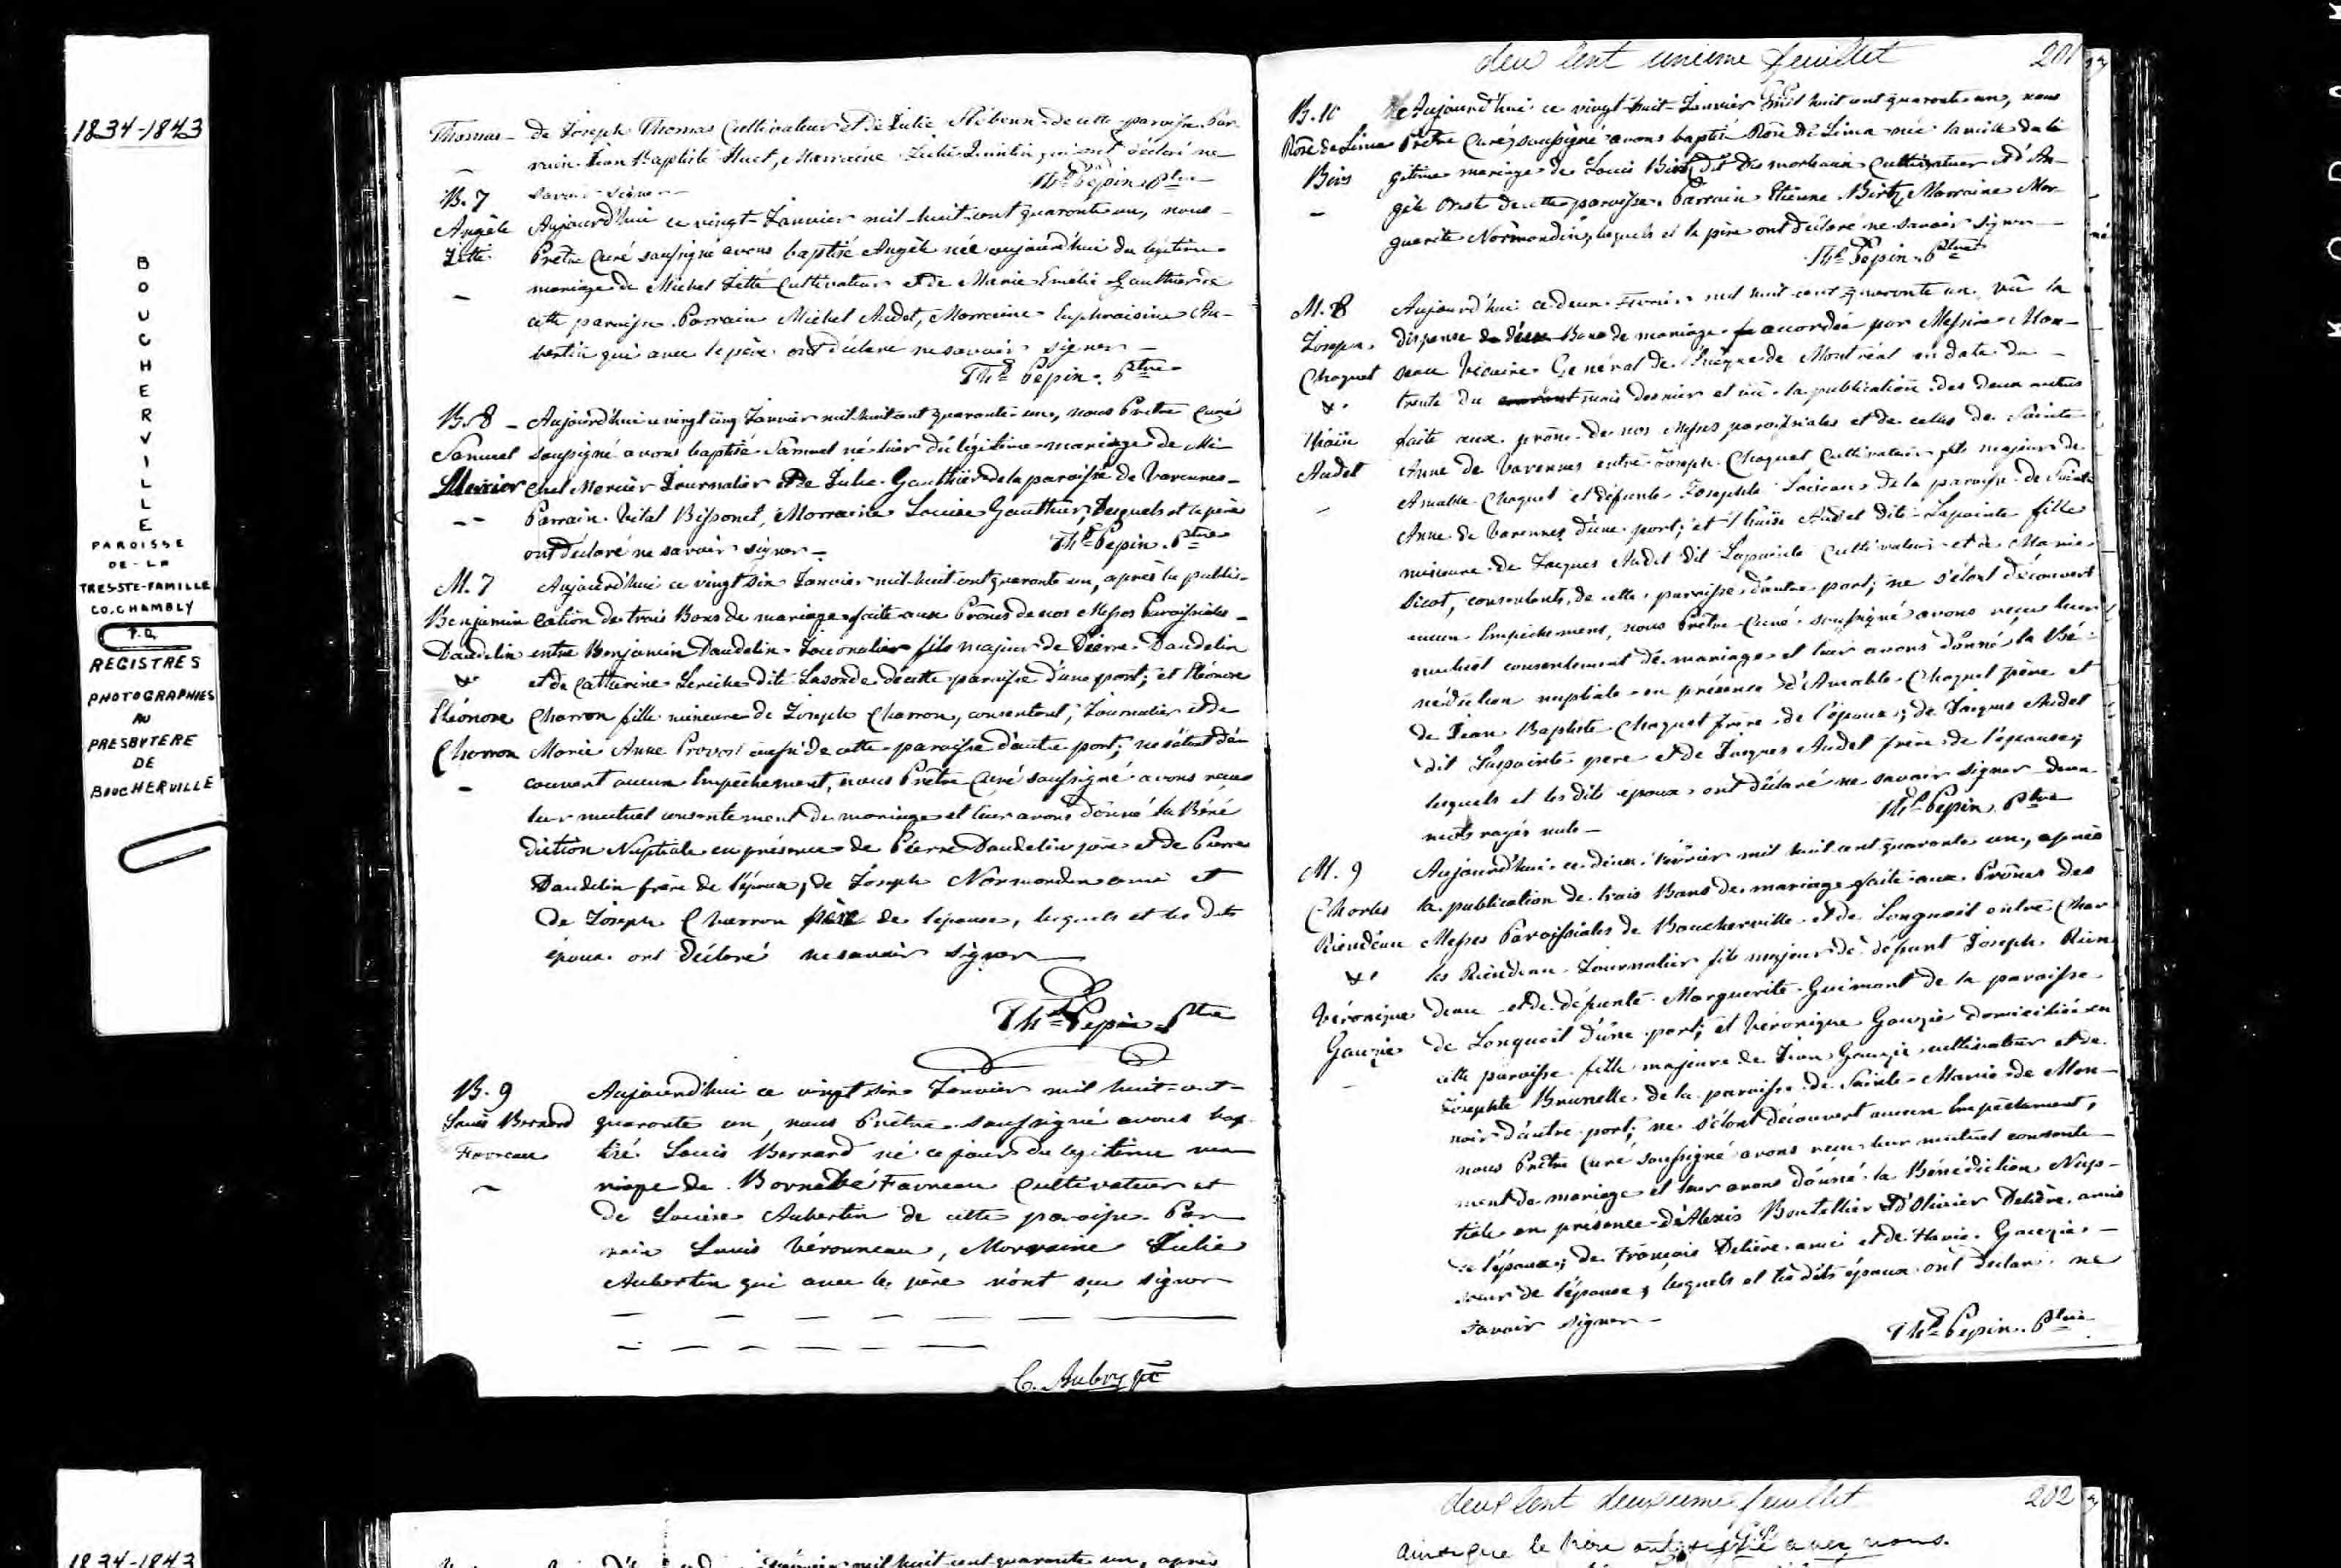 1834-1843
BOUCHERVILLE
PAROISSE
DE-LA
TRES-STE-FAMILLE
CO. CHAMBLY
P.Q.
REGISTRES
PHOTOGRAPHIES
AU
PRESBYTERE
DE
BOUCHERVILLE
Thomas de Joseph Thomas Cultivateur et de Julie de cette paroisse. Par-
rain Jean Baptiste Huet, Marraine Julie Quintin qui ont déclaré ne
savoir signer
Thd Pepin Ptre
B. 7
Angèle
Jetté
Aujourd'hui ce vingt Janvier mil huit cent quarante un, nous
Prêtre Curé soussigné avons baptisé Angèle née aujourd'hui du légitime
mariage de Michel Jetté Cultivateur et de Marie Emélie Gauthier de
cette paroisse. Parrain Michel Audet, Marraine Euphraisine Au-
bertin qui avec le père ont déclaré ne savoir signer
Thd Pepin. Ptre
B. 8
Samuel
Mercier
Aujourd'hui ce vingt cinq Janvier mil huit cent quarante-un, nous Prêtre Curé
soussigné avons baptisé Samuel né hier du légitime mariage de Mi-
chel Mercier Journalier et de Julie Gauthier de la paroisse de Varennes
Parrain Vital Bissonet, Marraine Louise Gauthier, lesquels et le père
ont déclaré ne savoir signer
Thd Pepin. Ptre
M. 7
Benjamin
Daudelin
&
Eléonore
Charron
Aujourd'hui ce vingt six Janvier mil huit cent quarante un, après la publi-
cation de trois Bans de mariage faite aux Prônes de nos Messes Paroissiales
entre Benjamin Daudelin Journalier fils majeur de Pierre Daudelin
et de Catherine Leriche dite Lasonde de cette paroisse d'une part; et Eléonore
Charron fille mineure de Joseph Charron, consentant, Journalier et de
Marie Anne Provost aussi de cette paroisse d'autre part; ne s'étant dé-
couvert aucun Empêchement, nous Prêtre Curé soussigné avons reçu
leur mutuel consentement de mariage et leur avons donné la Béné
diction Nuptiale en présence de Pierre Daudelin père et de Pierre
Daudelin frère de l'époux, de Joseph Normandin ami et
de Joseph Charron père de l'épouse, lesquels et les dits
époux ont déclaré ne savoir signer
Thd Pepin Ptre
B. 9
Louis Bernard
Favreau
Aujourd'hui ce vingt six Janvier mil huit-cent-
quarante un, nous Prêtre soussigné avons bap-
tisé Louis Bernard né ce jour du légitime ma
riage de Barnabé Favreau Cultivateur et
de Louise Aubertin de cette paroisse. Par
rain Louis Véronneau, Marraine Julie
Aubertin qui avec le père n'ont su signer
C. Aubry ptre
deu Cent unieme feuillet 201
B. 10
Rose de Lima
Birs
Aujourd'hui ce vingt-huit Janvier mil huit cent quarante-un, nous
Prêtre Curé soussigné avons baptisé Rose de Lima née la veille du lé
gitime mariage de Louis Birtz dit Des morbaux Cultivateur et d'An-
gèle de cette paroisse. Parrain Etienne Birtz, Marraine Mar-
guerite Normandin, lesquels et le père ont déclaré ne savoir signer
Thd Pepin. Ptre
M. 8
Joseph
Choquet
&
Thaïse
Audet
Aujourd'hui ce deux Février mil huit cent quarante un, vû la
dispense de deux Bans de mariage accordée par Messire Man-
seau Vicaire Général de l'Evêque de Montréal en date du
trente du courant mois dernier et vu la publication des deux autres
faite aux prône de nos Messes paroissiales et de celles de Sainte
Anne de Varennes entre Joseph Choquet Cultivateur fils majeur de
Amable Choquet et défunte Josephte Loiseau de la paroisse de Sainte
Anne de Varennes d'une part; et Thaïse Audet dite Lapointe fille
mineure de Jacques Audet dit Lapointe Cultivateur et de Marie
Sicot, consentants, de cette paroisse d'autre part; ne s'étant découvert
aucun Empêchement, nous Prêtre Curé soussigné avons reçu leur
mutuel consentement de mariage et leur avons donné la Bé-
nédiction nuptiale en présence d'Amable Choquet père et
de Jean Baptiste Choquet frère de l'époux; de Jacques Audet
dit Lapointe père et de Jacques Audet frère de l'épouse;
lesquels et les dits époux ont déclaré ne savoir signer deux
mots rayés nuls
Thd Pepin. Ptre
M. 9
Charles
Riendeau
&
Véronique
Gauzie
Aujourd'hui ce deux Février mil huit cent quarante un, après
la publication de trois Bans de mariage faite aux Prônes des
Messes Paroissiales de Boucherville et de Longueil entre Char
les Riendeau Journalier fils majeur de défunt Joseph Rien
deau et de défunte Marguerite Guimont de la paroisse
de Longueil d'une part; et Véronique Gauzie domiciliée en
cette paroisse fille majeure de Jean Gauzie cultivateur et de
Josephte Brunelle de la paroisse de Sainte Marie de Mon-
noir d'autre part; ne s'étant découvert aucun Empêchement,
nous Prêtre Curé soussigné avons reçu leur mutuel consente
ment de mariage et leur avons donné la Bénédiction Nup-
tiale en présence d'Alexis Boutellier et d'Olivier Delière, amis
de l'époux; de François Delière ami et de Flavie Gauzie
soeur de l'épouse, lesquels et les dits époux ont déclaré ne
savoir signer
Thd Pepin. Ptre
1834-1843
deux Cent deuxieme feuillet 202
mil huit cent quarante un, après
ainsi que le père ont signé avec nous.
KODAK